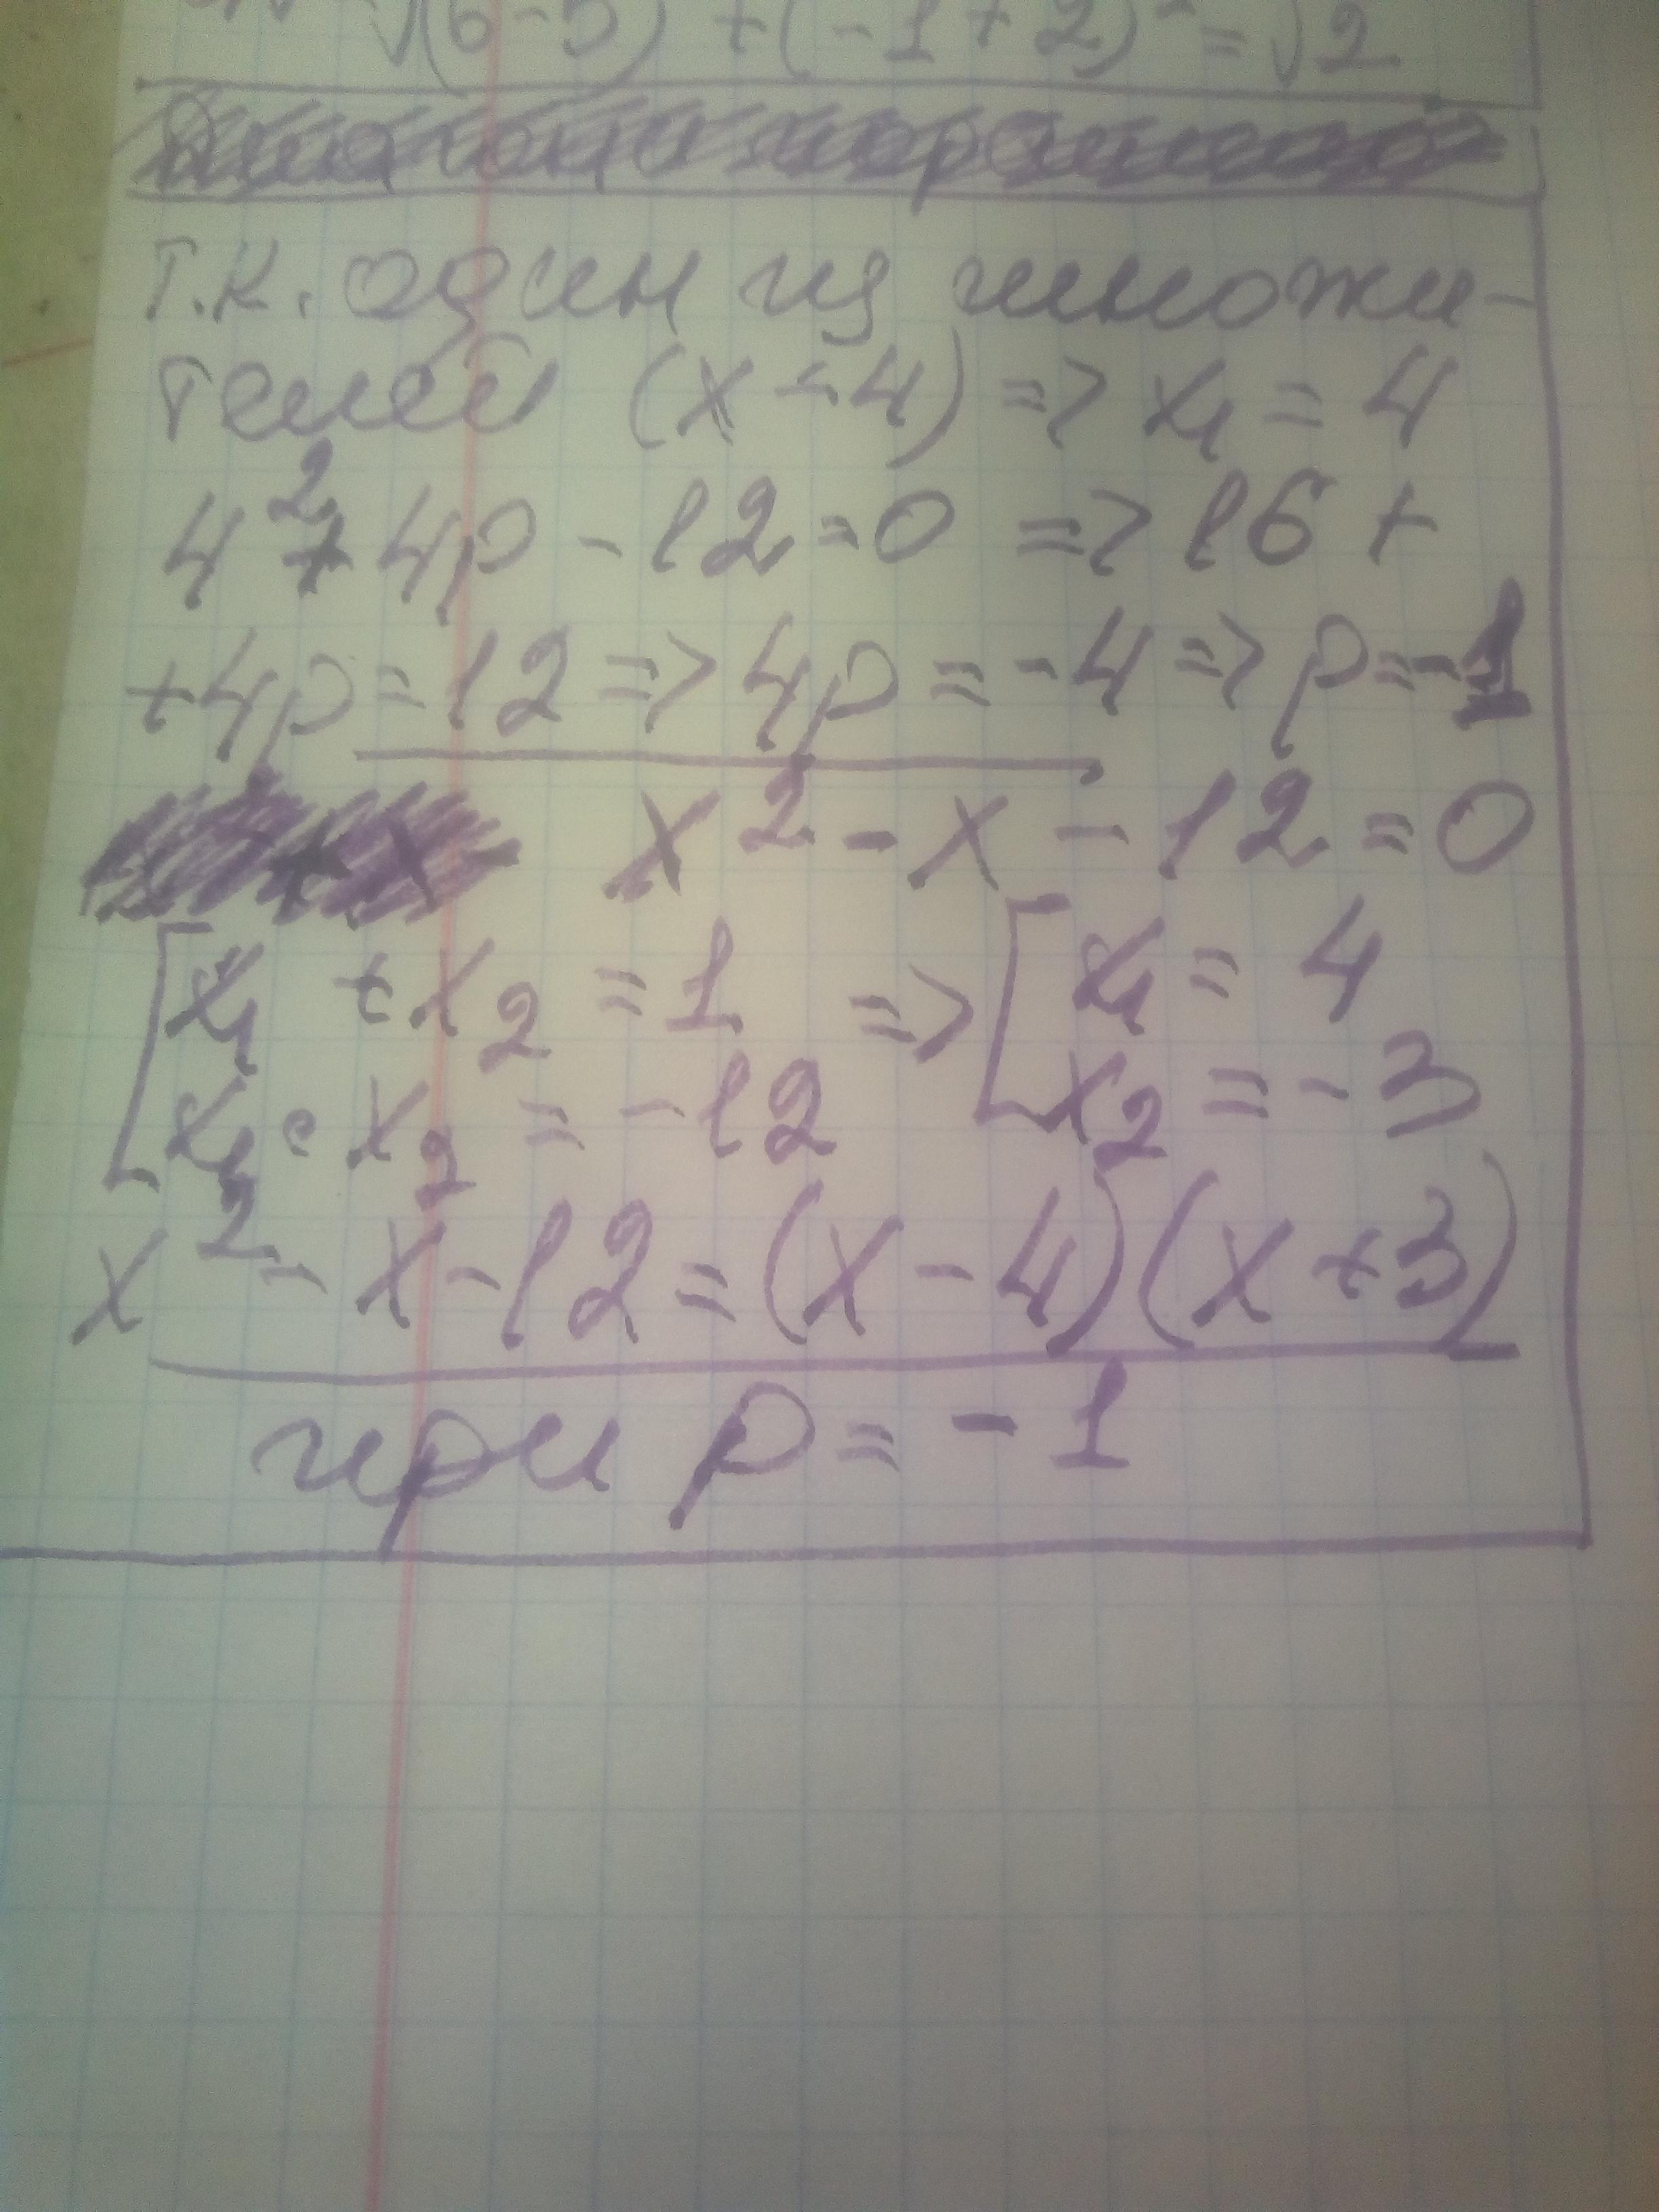 √(6-5) + (-1+2)² = √2
т.к. один из множи-
телей (x-4) => x₁ = 4
4² + 4p - 12 = 0 => 16 +
+4p = 12 => 4p = -4 => p = -1
x² - x - 12 = 0
[x₁ + x₂ = 1 => [x₁ = 4
x₁ · x₂ = -12 x₂ = -3
x² - x - 12 = (x - 4)(x + 3)
при p = -1